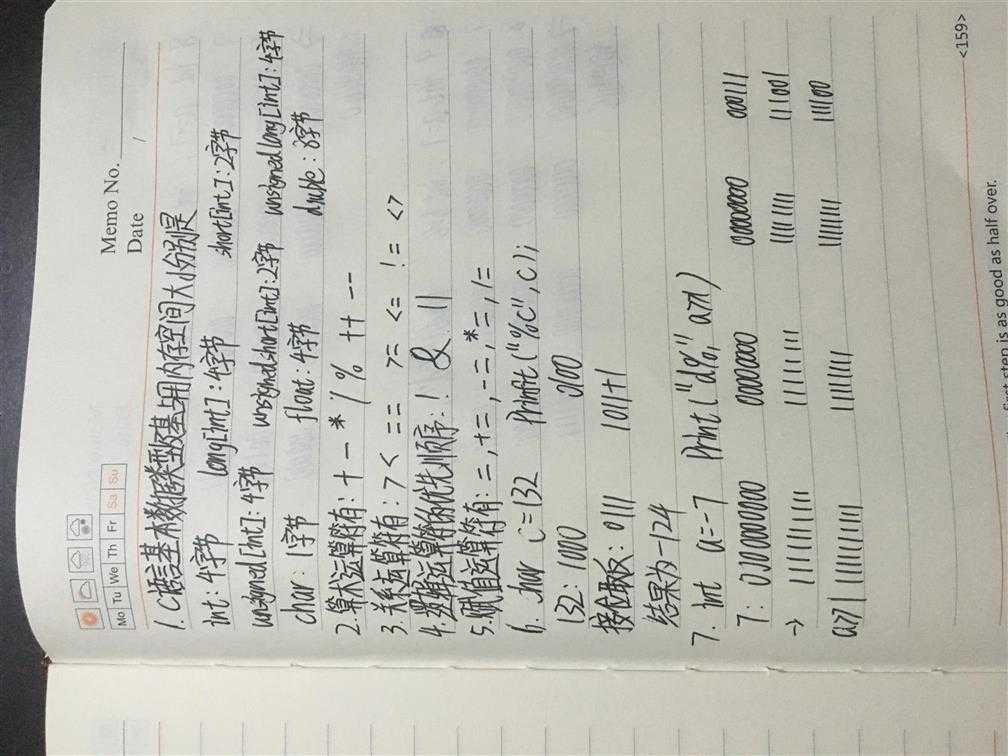 Memo No.
Date /
Mo Tu We Th Fr Sa Su
1. C语言基本数据类型及基占用内存空间大小分别是
int: 4字节 long[int]: 4字节 short[int]: 2字节
unsigned[int]: 4字节 unsigned short[int]: 2字节 unsigned long[int]: 4字节
char: 1字节 float: 4字节 double: 8字节
2. 算术运算符有: + - * / % ++ --
3. 关系运算符有: > < == >= <= != <>
4. 逻辑运算符的优先顺序: ! & ||
5. 赋值运算符有: =, +=, -=, *=, /=
6. char c=132 Printf("%c", c);
132: 1000 0100
按位取反: 0111 1011+1
结果为-124
7. int a=-7 Print("d%," a>>1)
7: 0000000000 00000000 00000000 000111
-> 1111111111 11111111 11111111 111001
a>>1 1111111111 11111111 11111111 111100
<159>
first step is as good as half over.